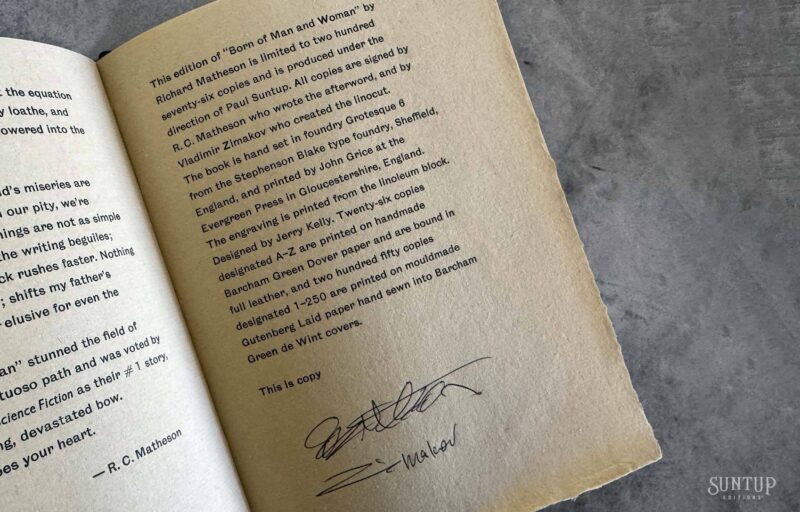 t the equation
y loathe, and
owered into the
d's miseries are
n our pity, we're
hings are not as simple
the writing beguiles;
ck rushes faster. Nothing
; shifts my father's
elusive for even the
an" stunned the field of
tuoso path and was voted by
Science Fiction as their #1 story,
ng, devastated bow.
pes your heart.
— R. C. Matheson
This edition of "Born of Man and Woman" by
Richard Matheson is limited to two hundred
seventy-six copies and is produced under the
direction of Paul Suntup. All copies are signed by
R. C. Matheson who wrote the afterword, and by
Vladimir Zimakov who created the linocut.
The book is hand set in foundry Grotesque 6
from the Stephenson Blake type foundry, Sheffield,
England, and printed by John Grice at the
Evergreen Press in Gloucestershire, England.
The engraving is printed from the linoleum block.
Designed by Jerry Kelly. Twenty-six copies
designated A–Z are printed on handmade
Barcham Green Dover paper and are bound in
full leather, and two hundred fifty copies
designated 1–250 are printed on mouldmade
Gutenberg Laid paper hand sewn into Barcham
Green de Wint covers.
This is copy
Zimakov
SUNTUP
EDITIONS